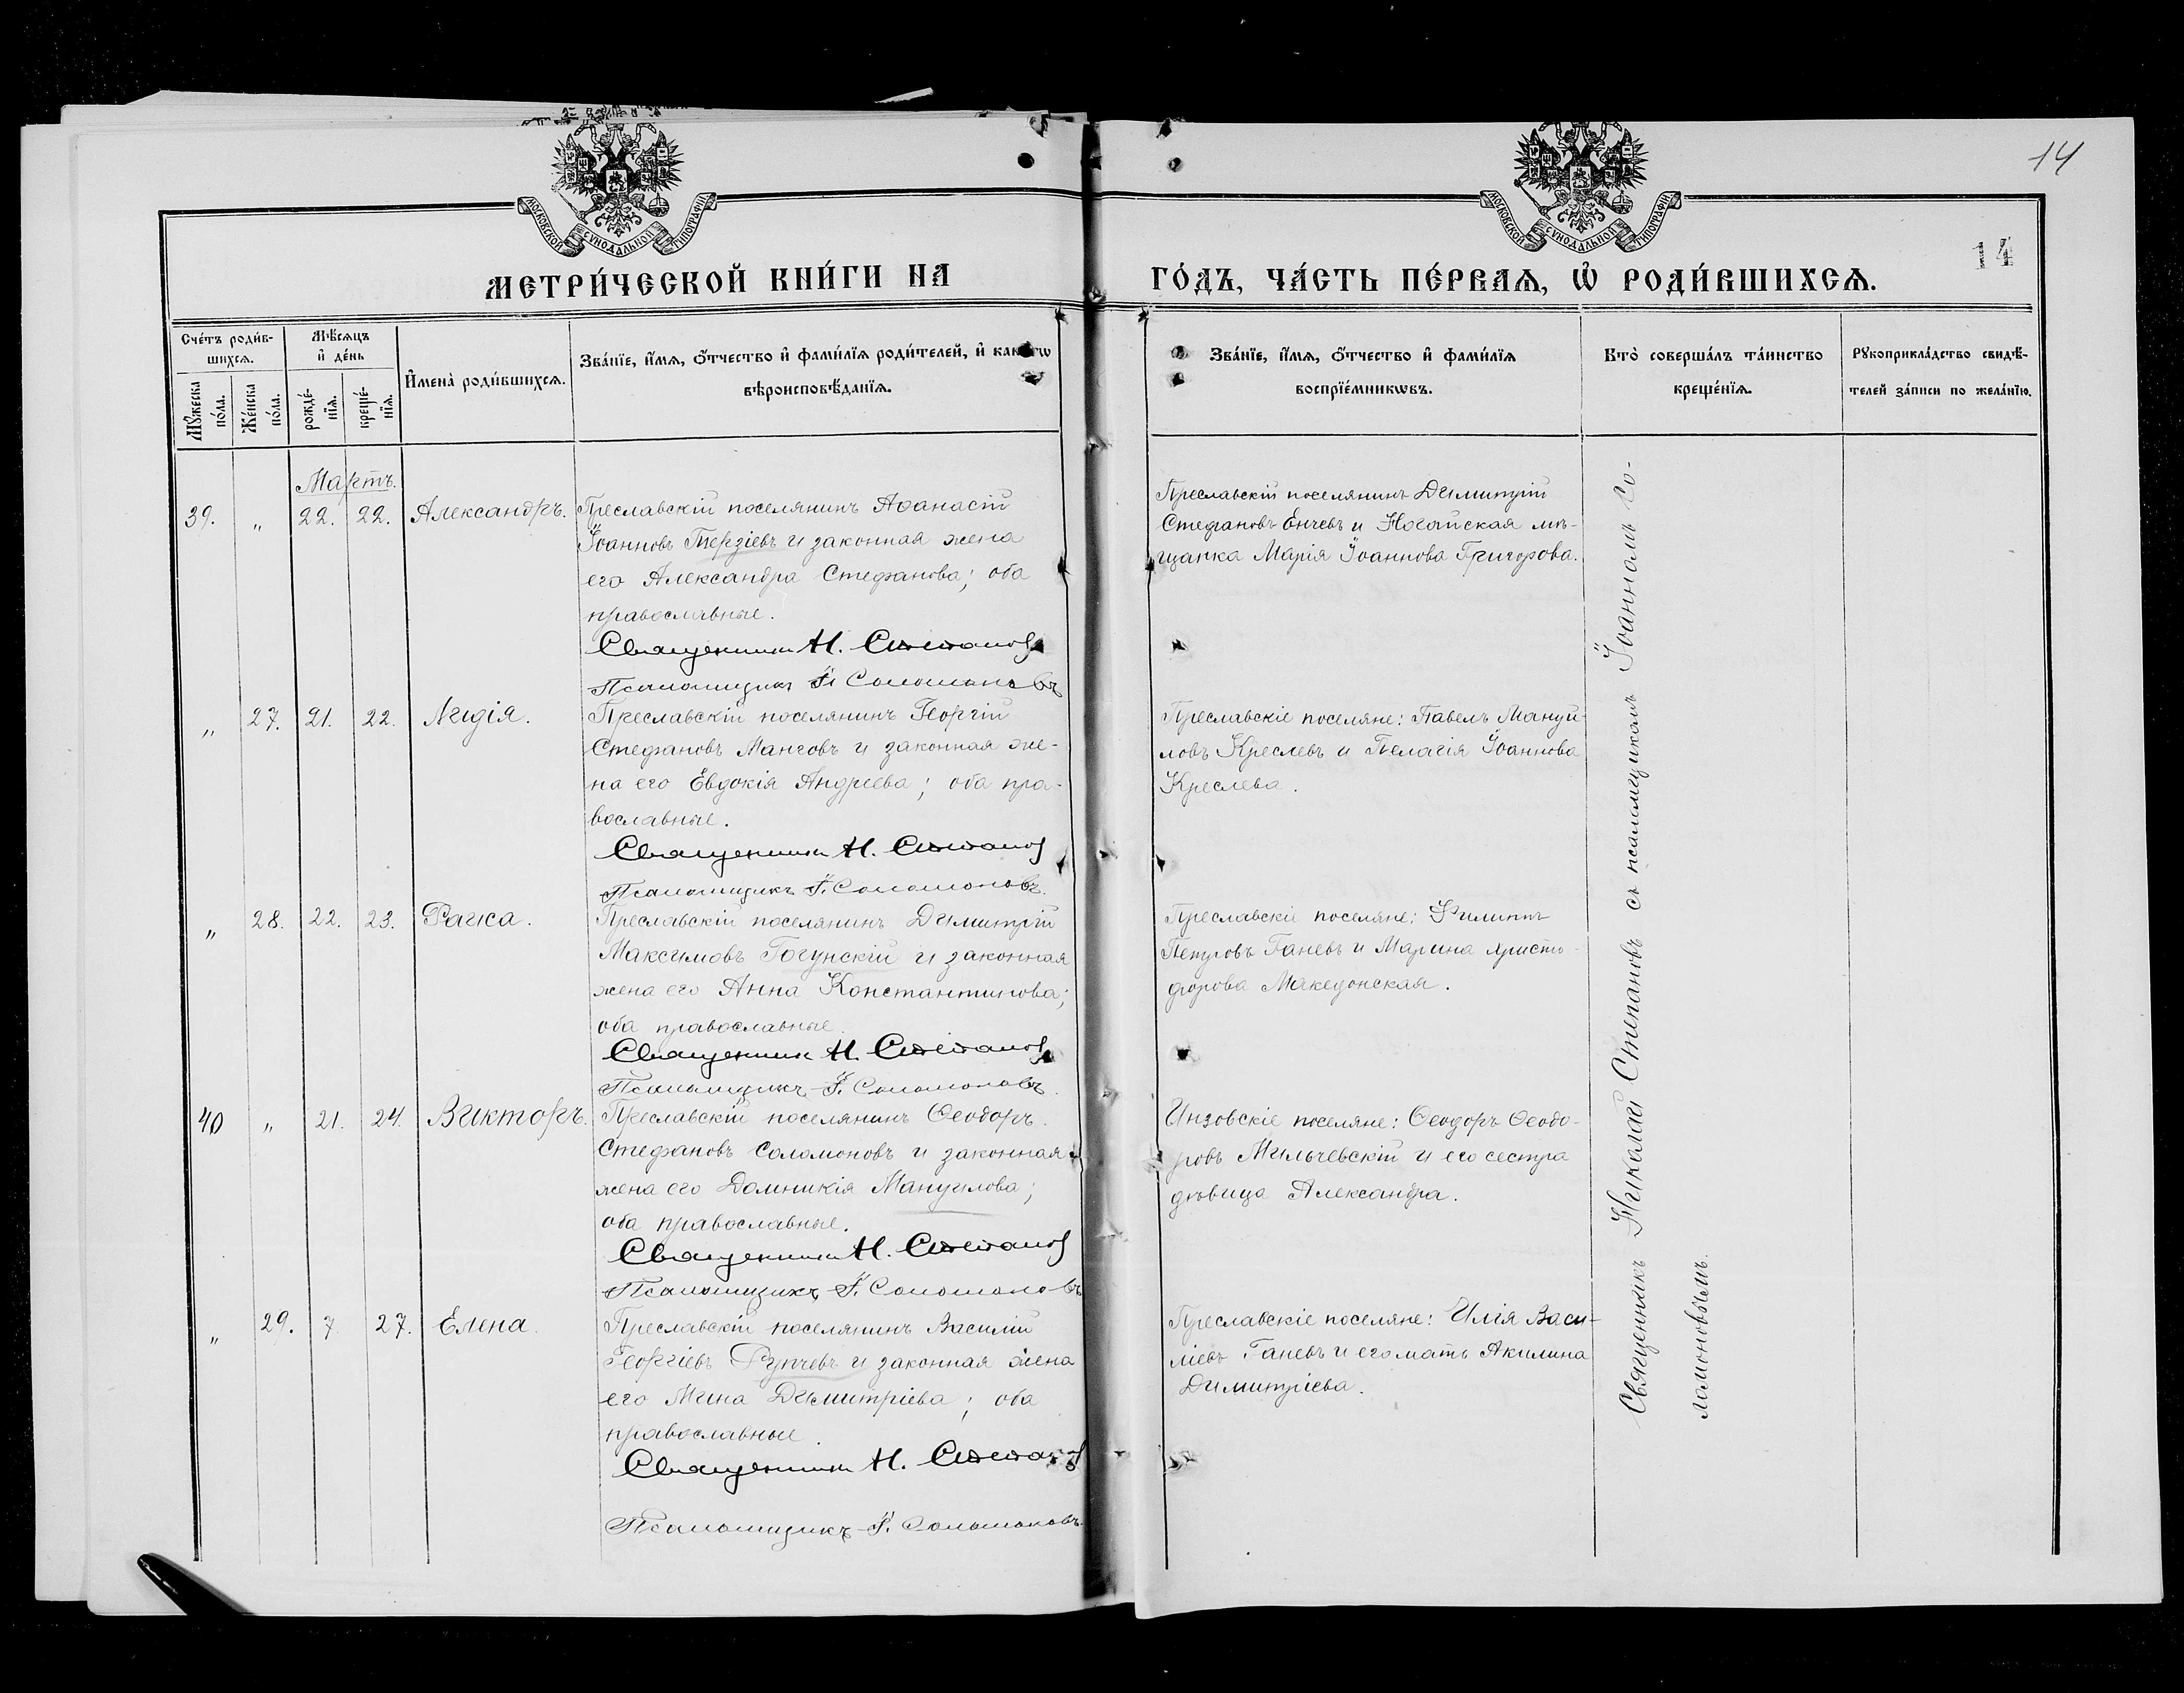 14
МОСКОВСКОЙ СУНОДАЛЬНОЙ ТИПОГРАФІИ
МОСКОВСКОЙ СУНОДАЛЬНОЙ ТИПОГРАФІИ
14
МЕТРИ́ЧЕСКОЙ КНИ́ГИ НА
ГО́ДЪ, ЧА́СТЬ ПЕ́РВАѦ, Ѡ҆ РОДИ́ВШИХСѦ.
Сче́тъ роди́в-
шихсѧ.
Мꙋ́жеска
по́ла.
Же́нска
по́ла.
Мѣ́сѧцъ
и҆ де́нь
рожде́-
нїѧ.
креще́-
нїѧ.
И҆мена̀ роди́вшихсѧ.
Зва́нїе, и҆́мѧ, ѻ҆́тчество и҆ фами́лїѧ роди́телей, и҆
вѣроисповѣ́данїѧ.
Зва́нїе, и҆́мѧ, ѻ҆́тчество и҆ фами́лїѧ
воспрїе́мникѡвъ.
Кто̀ соверша́лъ та́инство
креще́нїѧ.
Рꙋкоприкла́дство свидѣ́-
телей за́писи по жела́нїю.
Мартъ.
39. „ 22. 22. Александръ.
Преславскій поселянинъ Аѳанасій
Іоанновъ Терзіевъ и законная жена
его Александра Стефанова; оба
православные.
Священникъ Н. Степановъ
Псаломщикъ І. Соломоновъ
Преславскій поселянинъ Димитрій
Стефановъ Енчевъ и Ногайская мѣ-
щанка Марія Іоаннова Григорова.
„ 27. 21. 22. Лидія.
Преславскій поселянинъ Георгій
Стефановъ Манговъ и законная же-
на его Евдокія Андреева; оба пра-
вославные.
Священникъ Н. Степановъ
Псаломщикъ І. Соломоновъ.
Преславскіе поселяне: Павелъ Мануи-
ловъ Креслевъ и Пелагія Іоаннова
Креслева.
„ 28. 22. 23. Рагка.
Преславскій поселянинъ Димитрій
Максимовъ Гогунскій и законная
жена его Анна Константинова;
оба православные.
Священникъ Н. Степановъ
Псаломщикъ І. Соломоновъ.
Преславскіе поселяне: Филиппъ
Петровъ Ганевъ и Марина Христо-
форова Македонская.
40 „ 21. 24. Викторъ.
Преславскій поселянинъ Ѳеодоръ
Стефановъ Соломоновъ и законная
жена его Домникія Мануилова;
оба православные.
Священникъ Н. Степановъ
Псаломщикъ І. Соломоновъ
Инзовскіе поселяне: Ѳеодоръ Ѳеодо-
ровъ Мильчевскій и его сестра
дѣвица Александра.
„ 29. 7. 27. Елена.
Преславскій поселянинъ Василій
Георгіевъ Рупчевъ и законная жена
его Мина Димитріева; оба
православные.
Священникъ Н. Степановъ
Псаломщикъ І. Соломоновъ.
Преславскіе поселяне: Илія Васи-
ліевъ Ганевъ и его мать Акилина
Димитріева.
Священникъ Николай Степановъ съ псаломщикомъ Іоанномъ Со-
ломоновымъ.